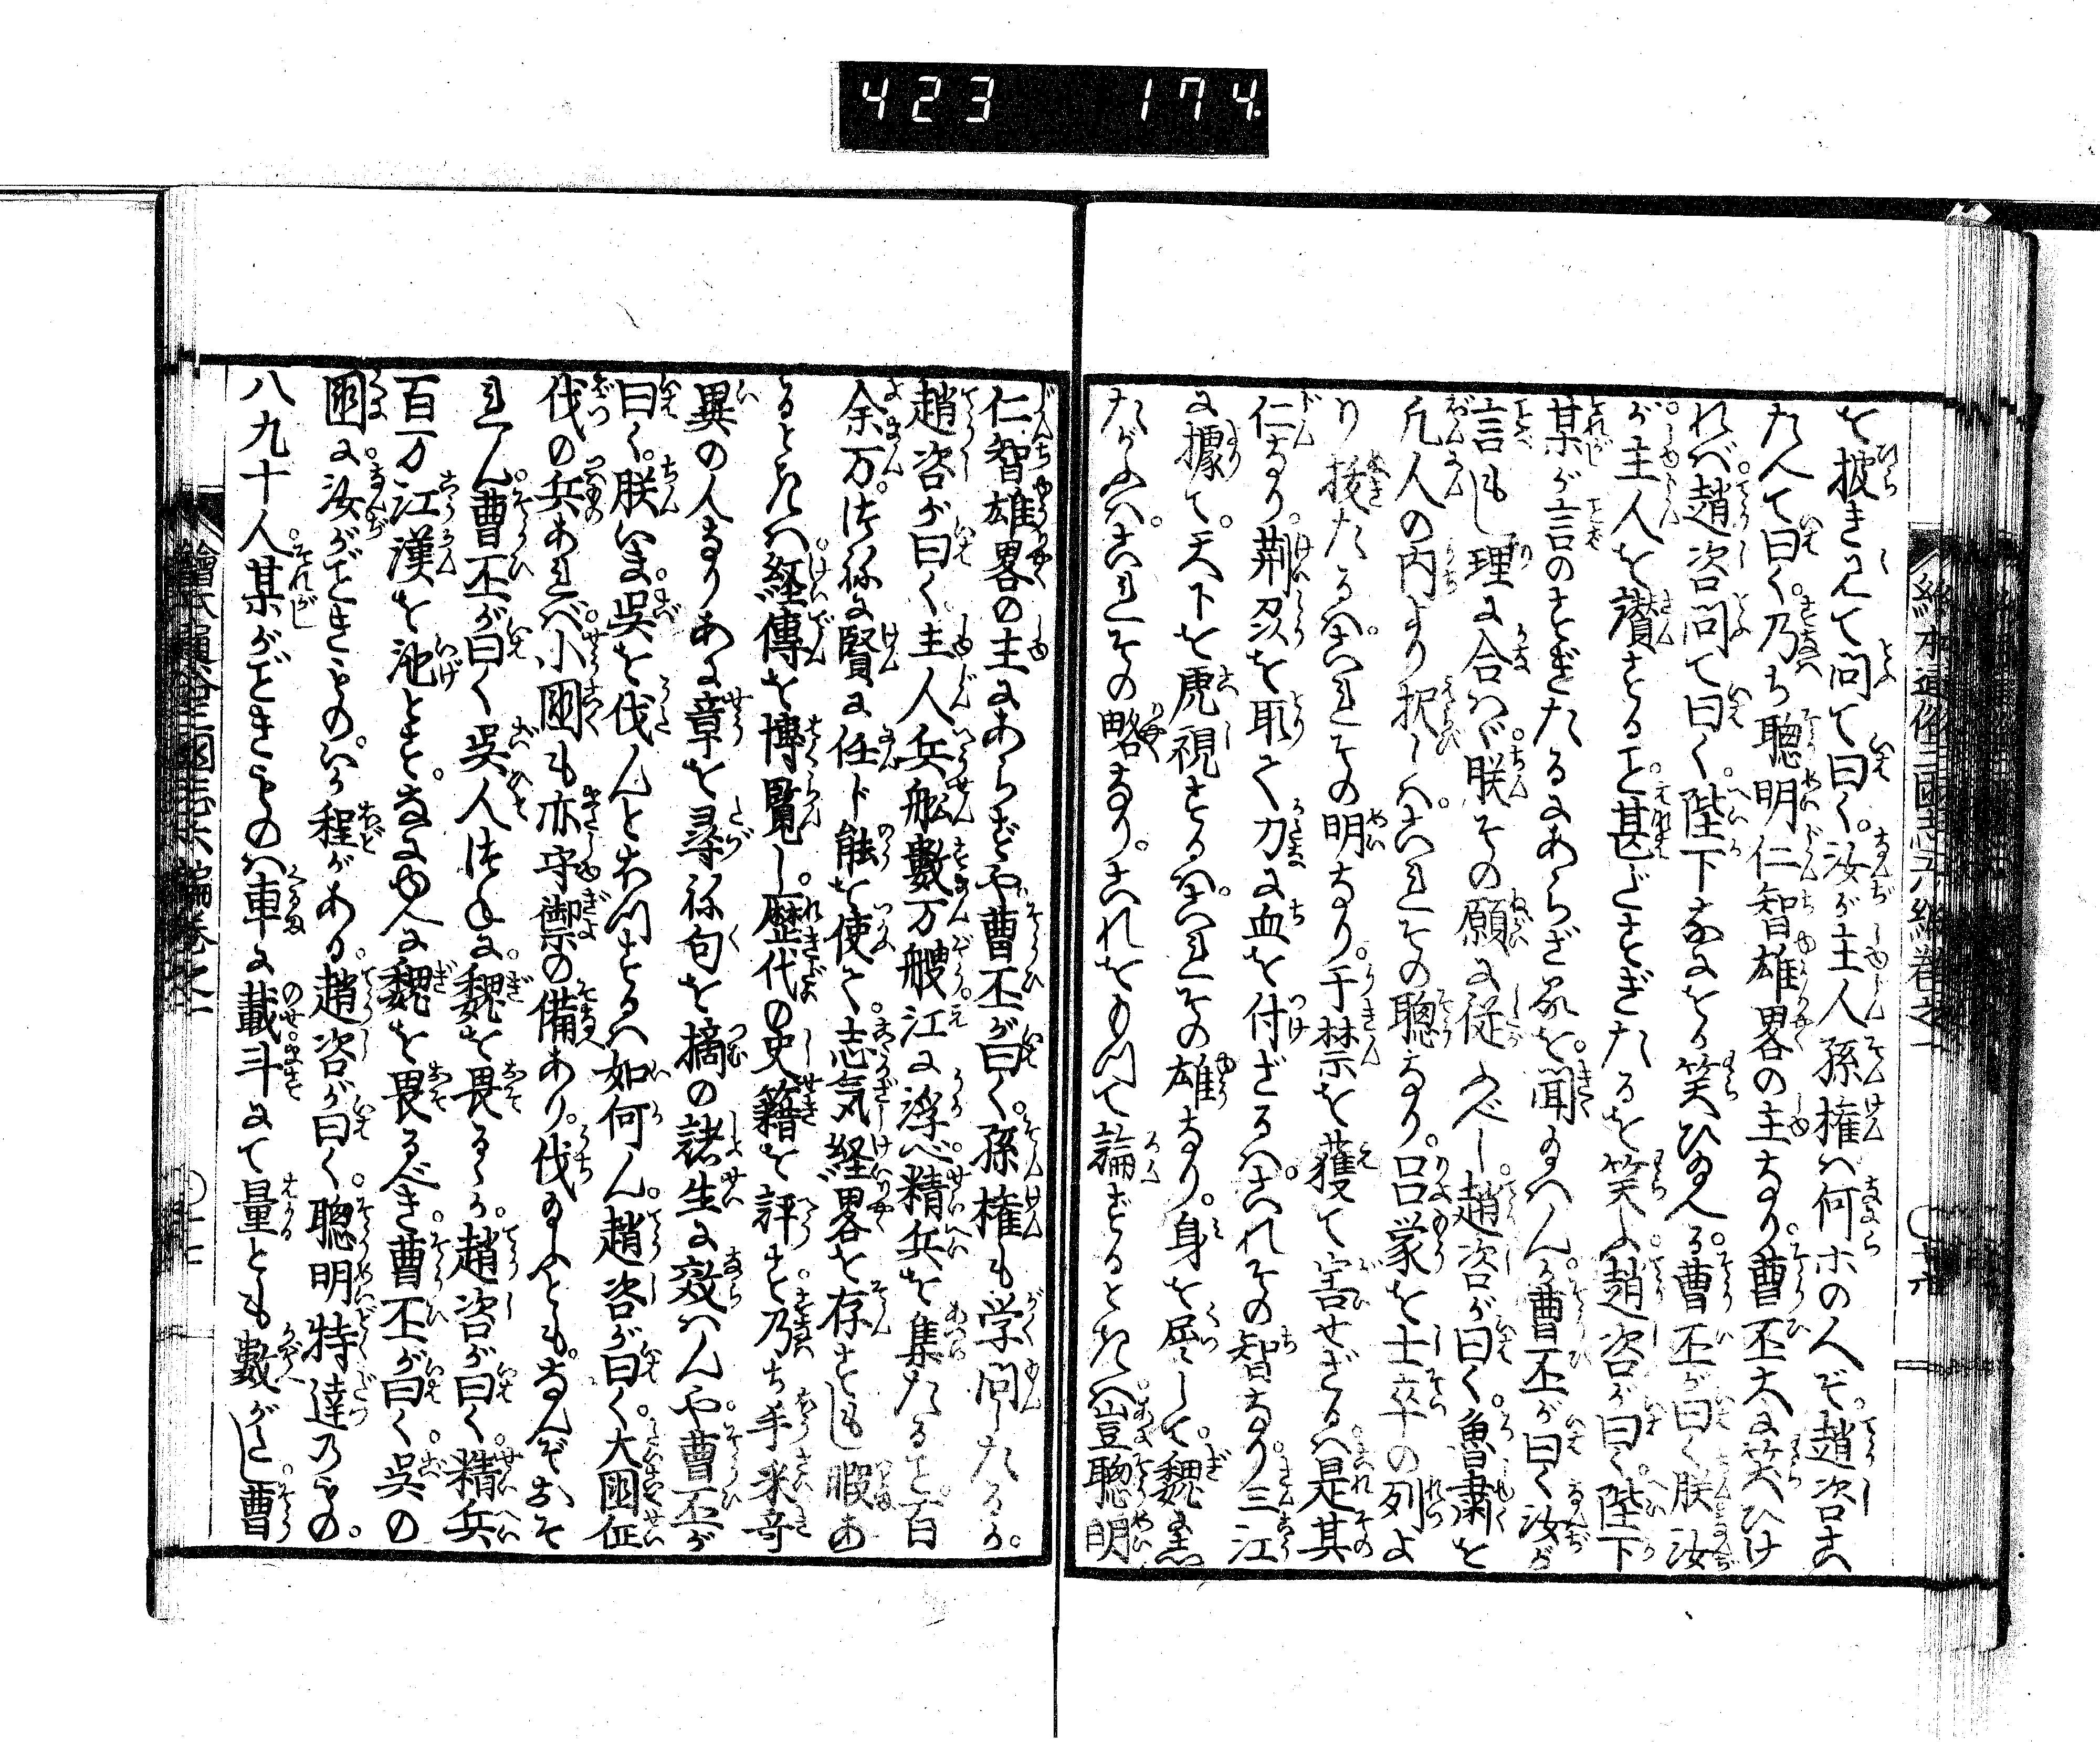 423 174
を披き見て問て曰く汝が主人孫権ハ何ホの人ぞ。趙咨こ
たへて曰く。乃ち聰明仁智雄畧の主なり。曹丕大に笑ひけ
れバ。趙咨問て曰く。陛下なにをか笑ひ給ふ。曹丕が曰く朕汝
が主人を讃すること。甚ださとぎたるを笑ふ。趙咨が曰く陛下
某が言のすぎたるにあらざるを。聞給へん。曹丕が曰く汝が
言もし理に合ハゞ。朕その願に従ふべし。趙咨が曰く。魯粛を
凡人の内より択しハ。これその聰なり。呂蒙を士卒の列よ
り抜たるハ。これその明なり。于禁を獲て害せざるハ。是其
仁なり。荆州を取て刀に血を付ざるハ。これその智なり。三江
に據て。天下を虎視するハ。これその雄なり。身を屈して。魏に
たがふハ。これその略なり。これをもつて論ずるときハ。豈聰明
仁智雄畧の主にあらずや。曹丕が曰く。孫権も学問したるか。
趙咨が曰く。主人兵舩數万艘江に浮べ。精兵を集たること。百
余万。つねに賢に任ド能を使て。志気経畧を存す。もし暇あ
るときハ。経傳を博覧し。歴代の史籍を評す。乃ち手釆奇
異の人なり。あに章を尋ね句を摘の諸生に效ハんや。曹丕が
曰く。朕いま。呉を伐んとおもふ。如何ん。趙咨が曰く。大國征
伐の兵あれバ。小國も亦守禦の備あり。伐給ふとも。なんぞおそ
れん。曹丕が曰く呉人つねに。魏を畏るゝか。趙咨が曰く。精兵
百万江漢を池とす。なにゆへに魏を畏るべき。曹丕が曰く。呉の
國に。汝がごときもの。いか程がある。趙咨が曰く。聰明特達のもの。
八九十人。某がごときものハ車に載斗にて量とも。數がたし。曹
繪本通俗三國志六編巻之一